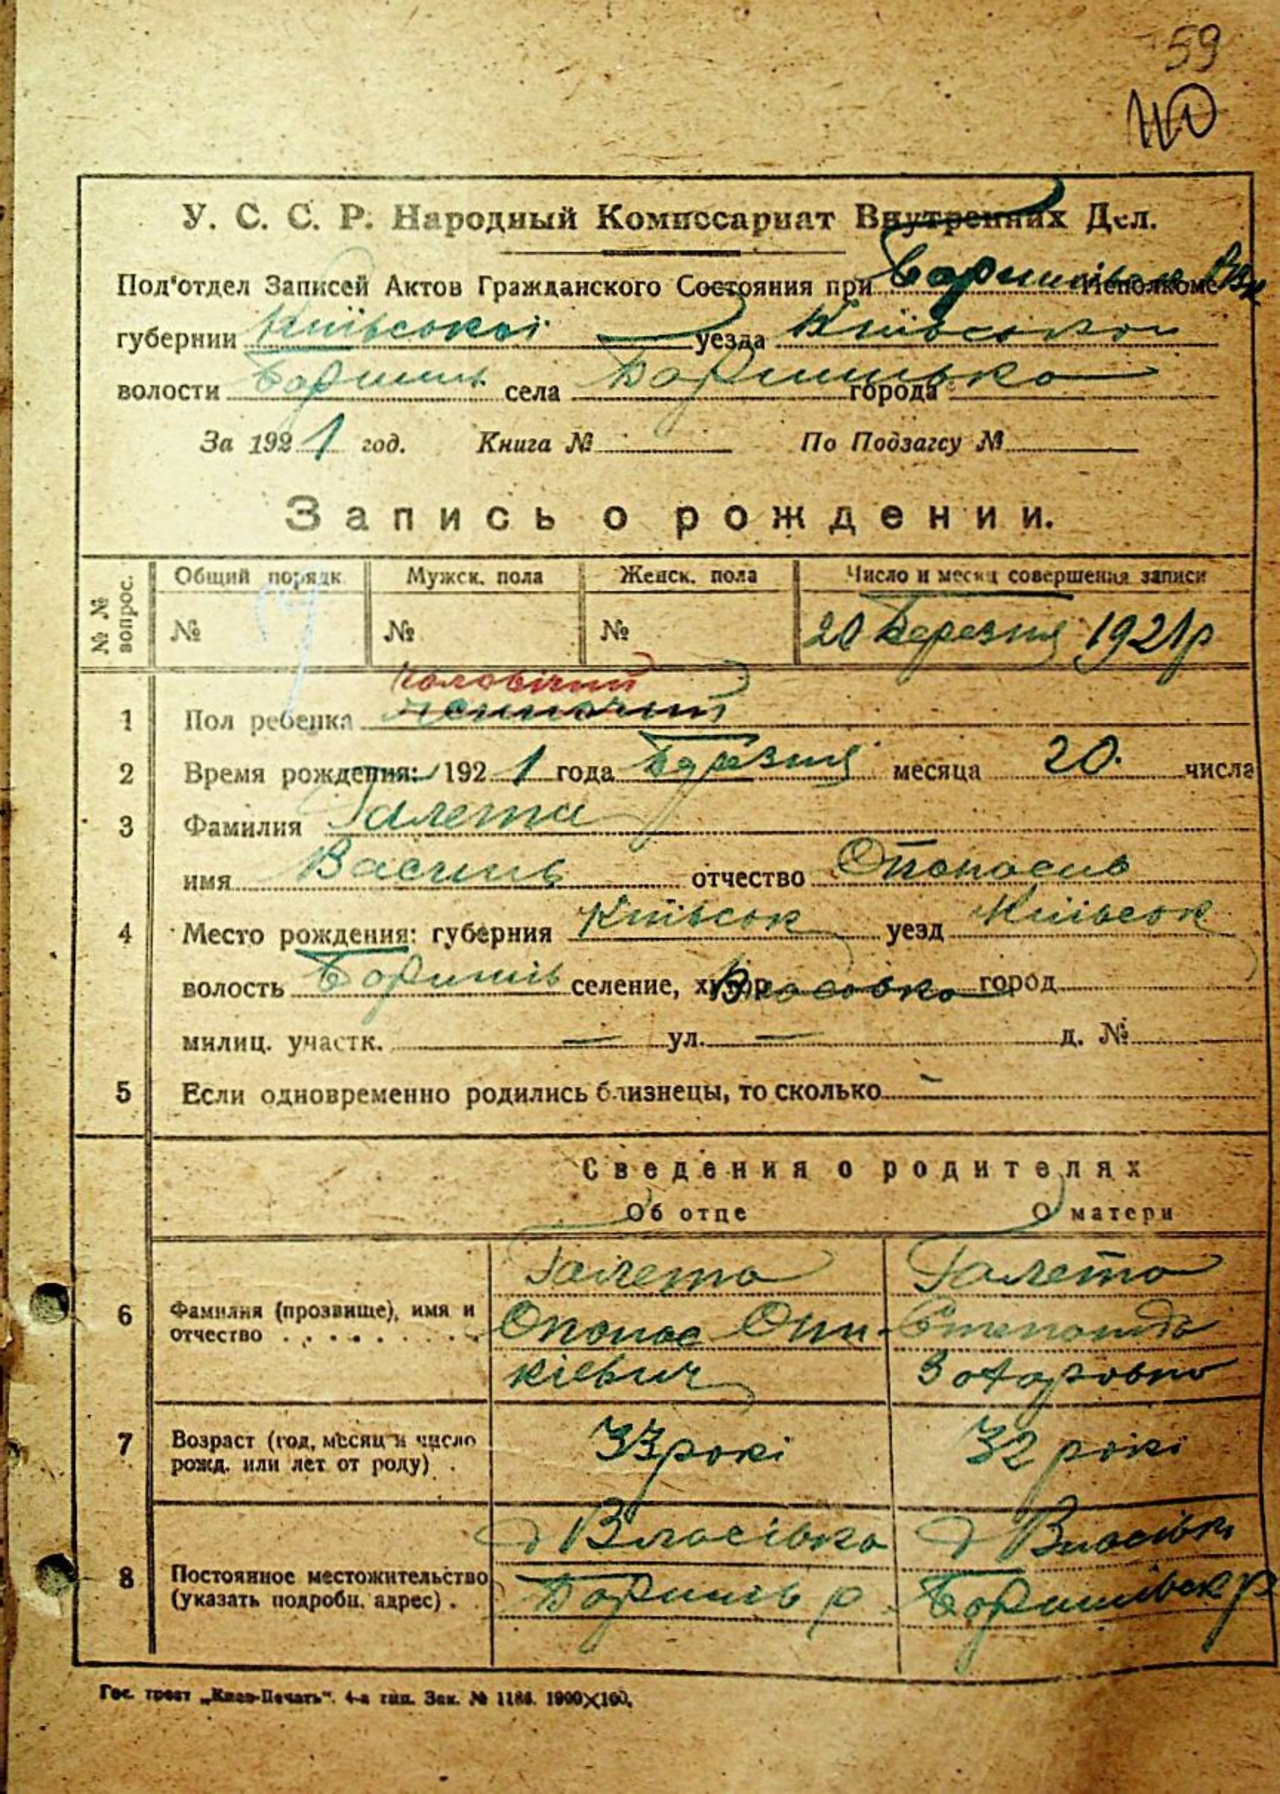 59
У. С. С. Р. Народный Комиссариат Внутренних Дел.
Под'отдел Записей Актов Гражданского Состояния при Исполкоме
губернии Київської уезда Київсько
волости села города
За 1921 год. Книга № По Подзагсу №
Запись о рождении.
№ № вопрос. Общий порядк. Мужск. пола Женск. пола Число и месяц совершения записи
№ № № 20 Березня 1921 р
чоловічий
1 Пол ребенка жиночий
2 Время рождения: 1921 года Березня месяца 20. числа
3 Фамилия Галета
имя Василь отчество Опонасів
4 Место рождения: губерния Київськ уезд Київськ
волость Боришпів селение, хутор Власовка город
милиц. участк. — ул. — д. №
5 Если одновременно родились близнецы, то сколько —
Сведения о родителях
Об отце О матери
Галета Галета
6 Фамилия (прозвище), имя и Опонас Они- Степонида
отчество . . . . . . . . кієвич Захаровна
7 Возраст (год, месяц и число 33 рокі 32 рокі
рожд. или лет от роду) .
д Власівка д Власівка
8 Постоянное местожительство
(указать подробн. адрес) .
Гос. трест „Киев-Печать“. 4-я тип. Зак. № 1186. 1000×100.